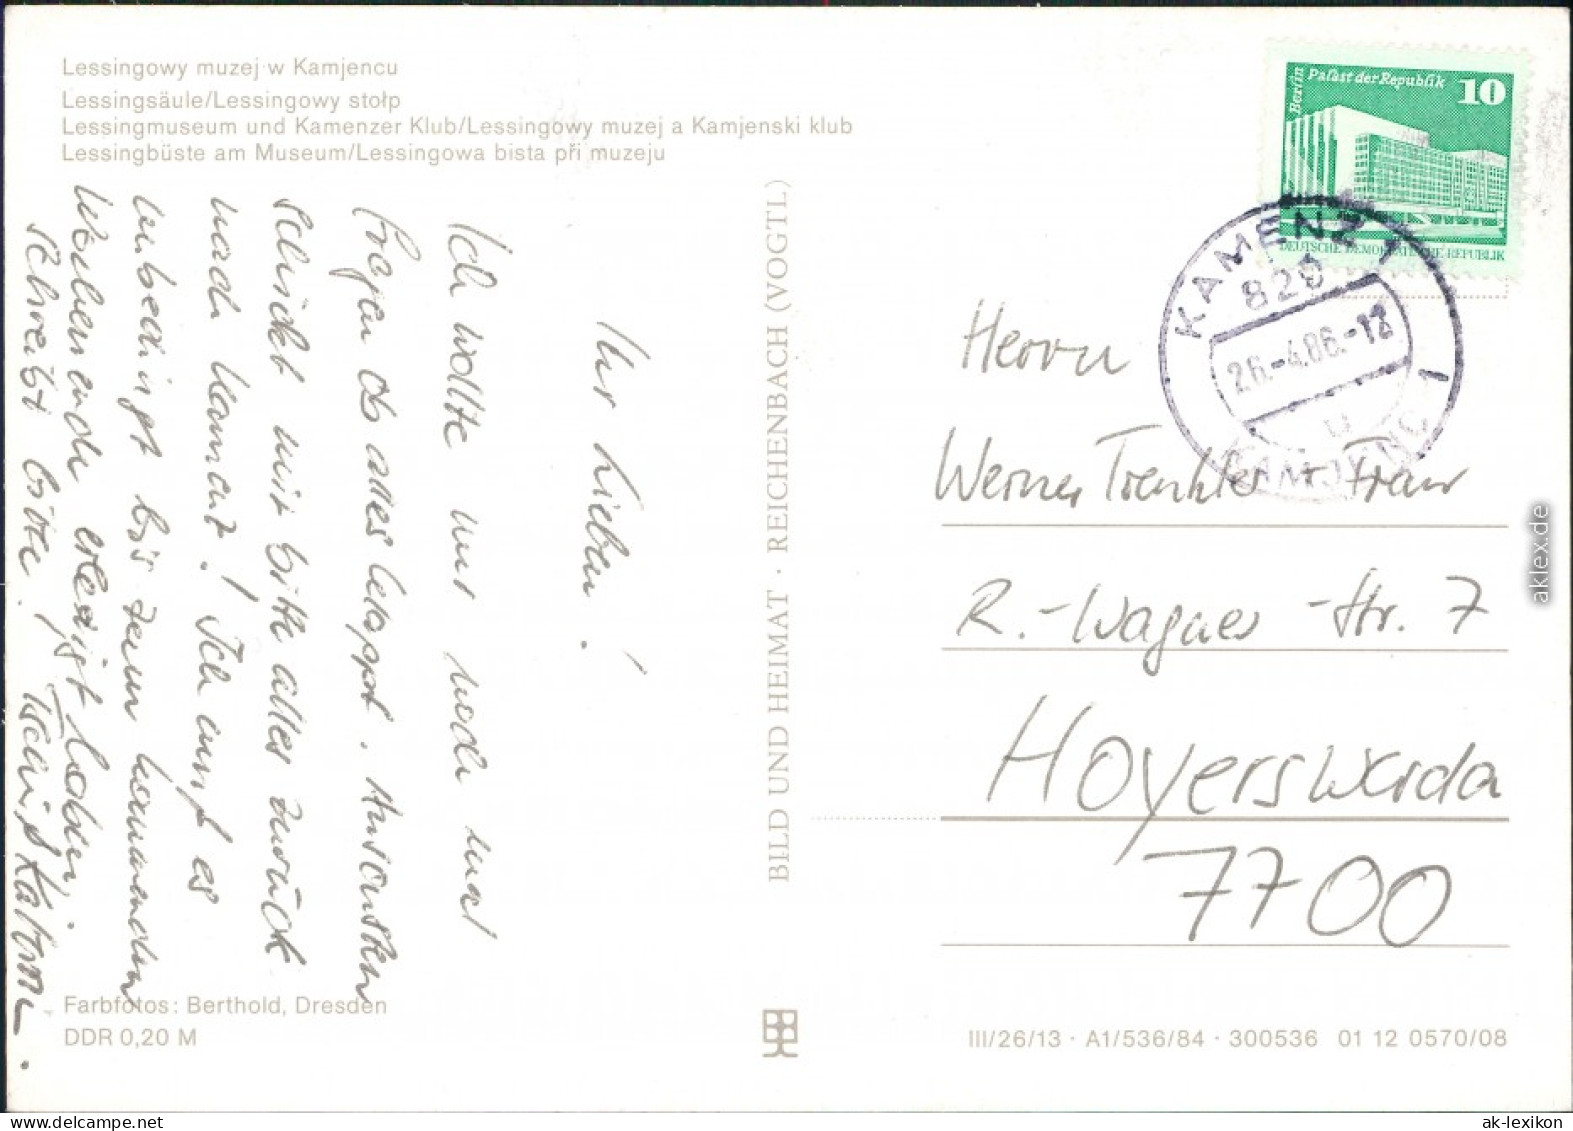 Lessingowy muzej w Kamjencu
Lessingsäule/Lessingowy stołp
Lessingmuseum und Kamenzer Klub/Lessingowy muzej a Kamjenski klub
Lessingbüste am Museum/Lessingowa bista při muzeju
Ihr Lieben!
Ich wollte nur noch mal
fragen ob alles klappt. Ansonsten
schickt mir bitte alles zurück
nach Kamenz! Ich muß es
unbedingt bis zum kommenden
Wochenende erledigt haben.
Schreibt bitte!
Farbfotos: Berthold, Dresden
DDR 0,20 M
BILD UND HEIMAT · REICHENBACH (VOGTL)
Berlin
Palast der Republik
10
DEUTSCHE DEMOKRATISCHE REPUBLIK
KAMENZ 1
829
26.-4.86.-12
KAMJENC 1
Herrn
Werner Trenkler + Frau
R.-Wagner-Str. 7
Hoyerswerda
7700
III/26/13 · A1/536/84 · 300536 01 12 0570/08
aklex.de
www.delcampe.net
ak-lexikon